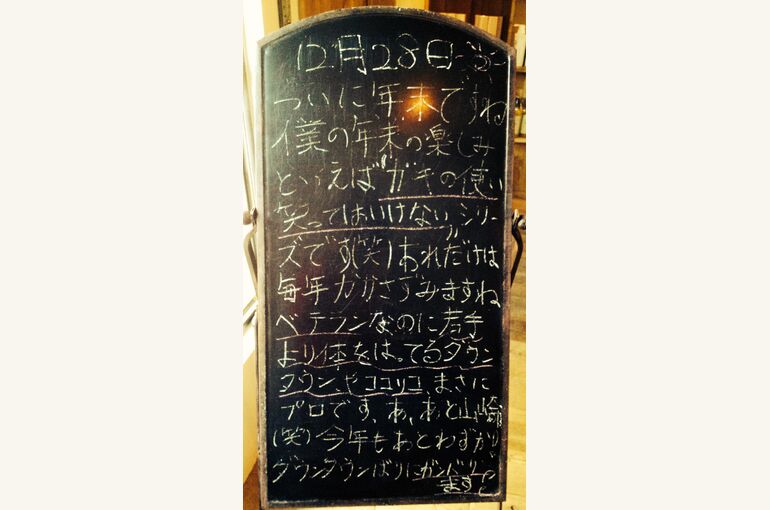 12月28日
ついに年末ですね
僕の年末の楽しみ
といえば"ガキの使い
笑ってはいけない"シリー
ズです(笑)おれだけは
毎年かかさずみますね
ベテランなのに若手
より体をはってるダウン
タウン、やココリコ、まさに
プロです、あ、あと山崎
(笑)今年もあとわずか
ダウンタウンばりにガンバリ
ます